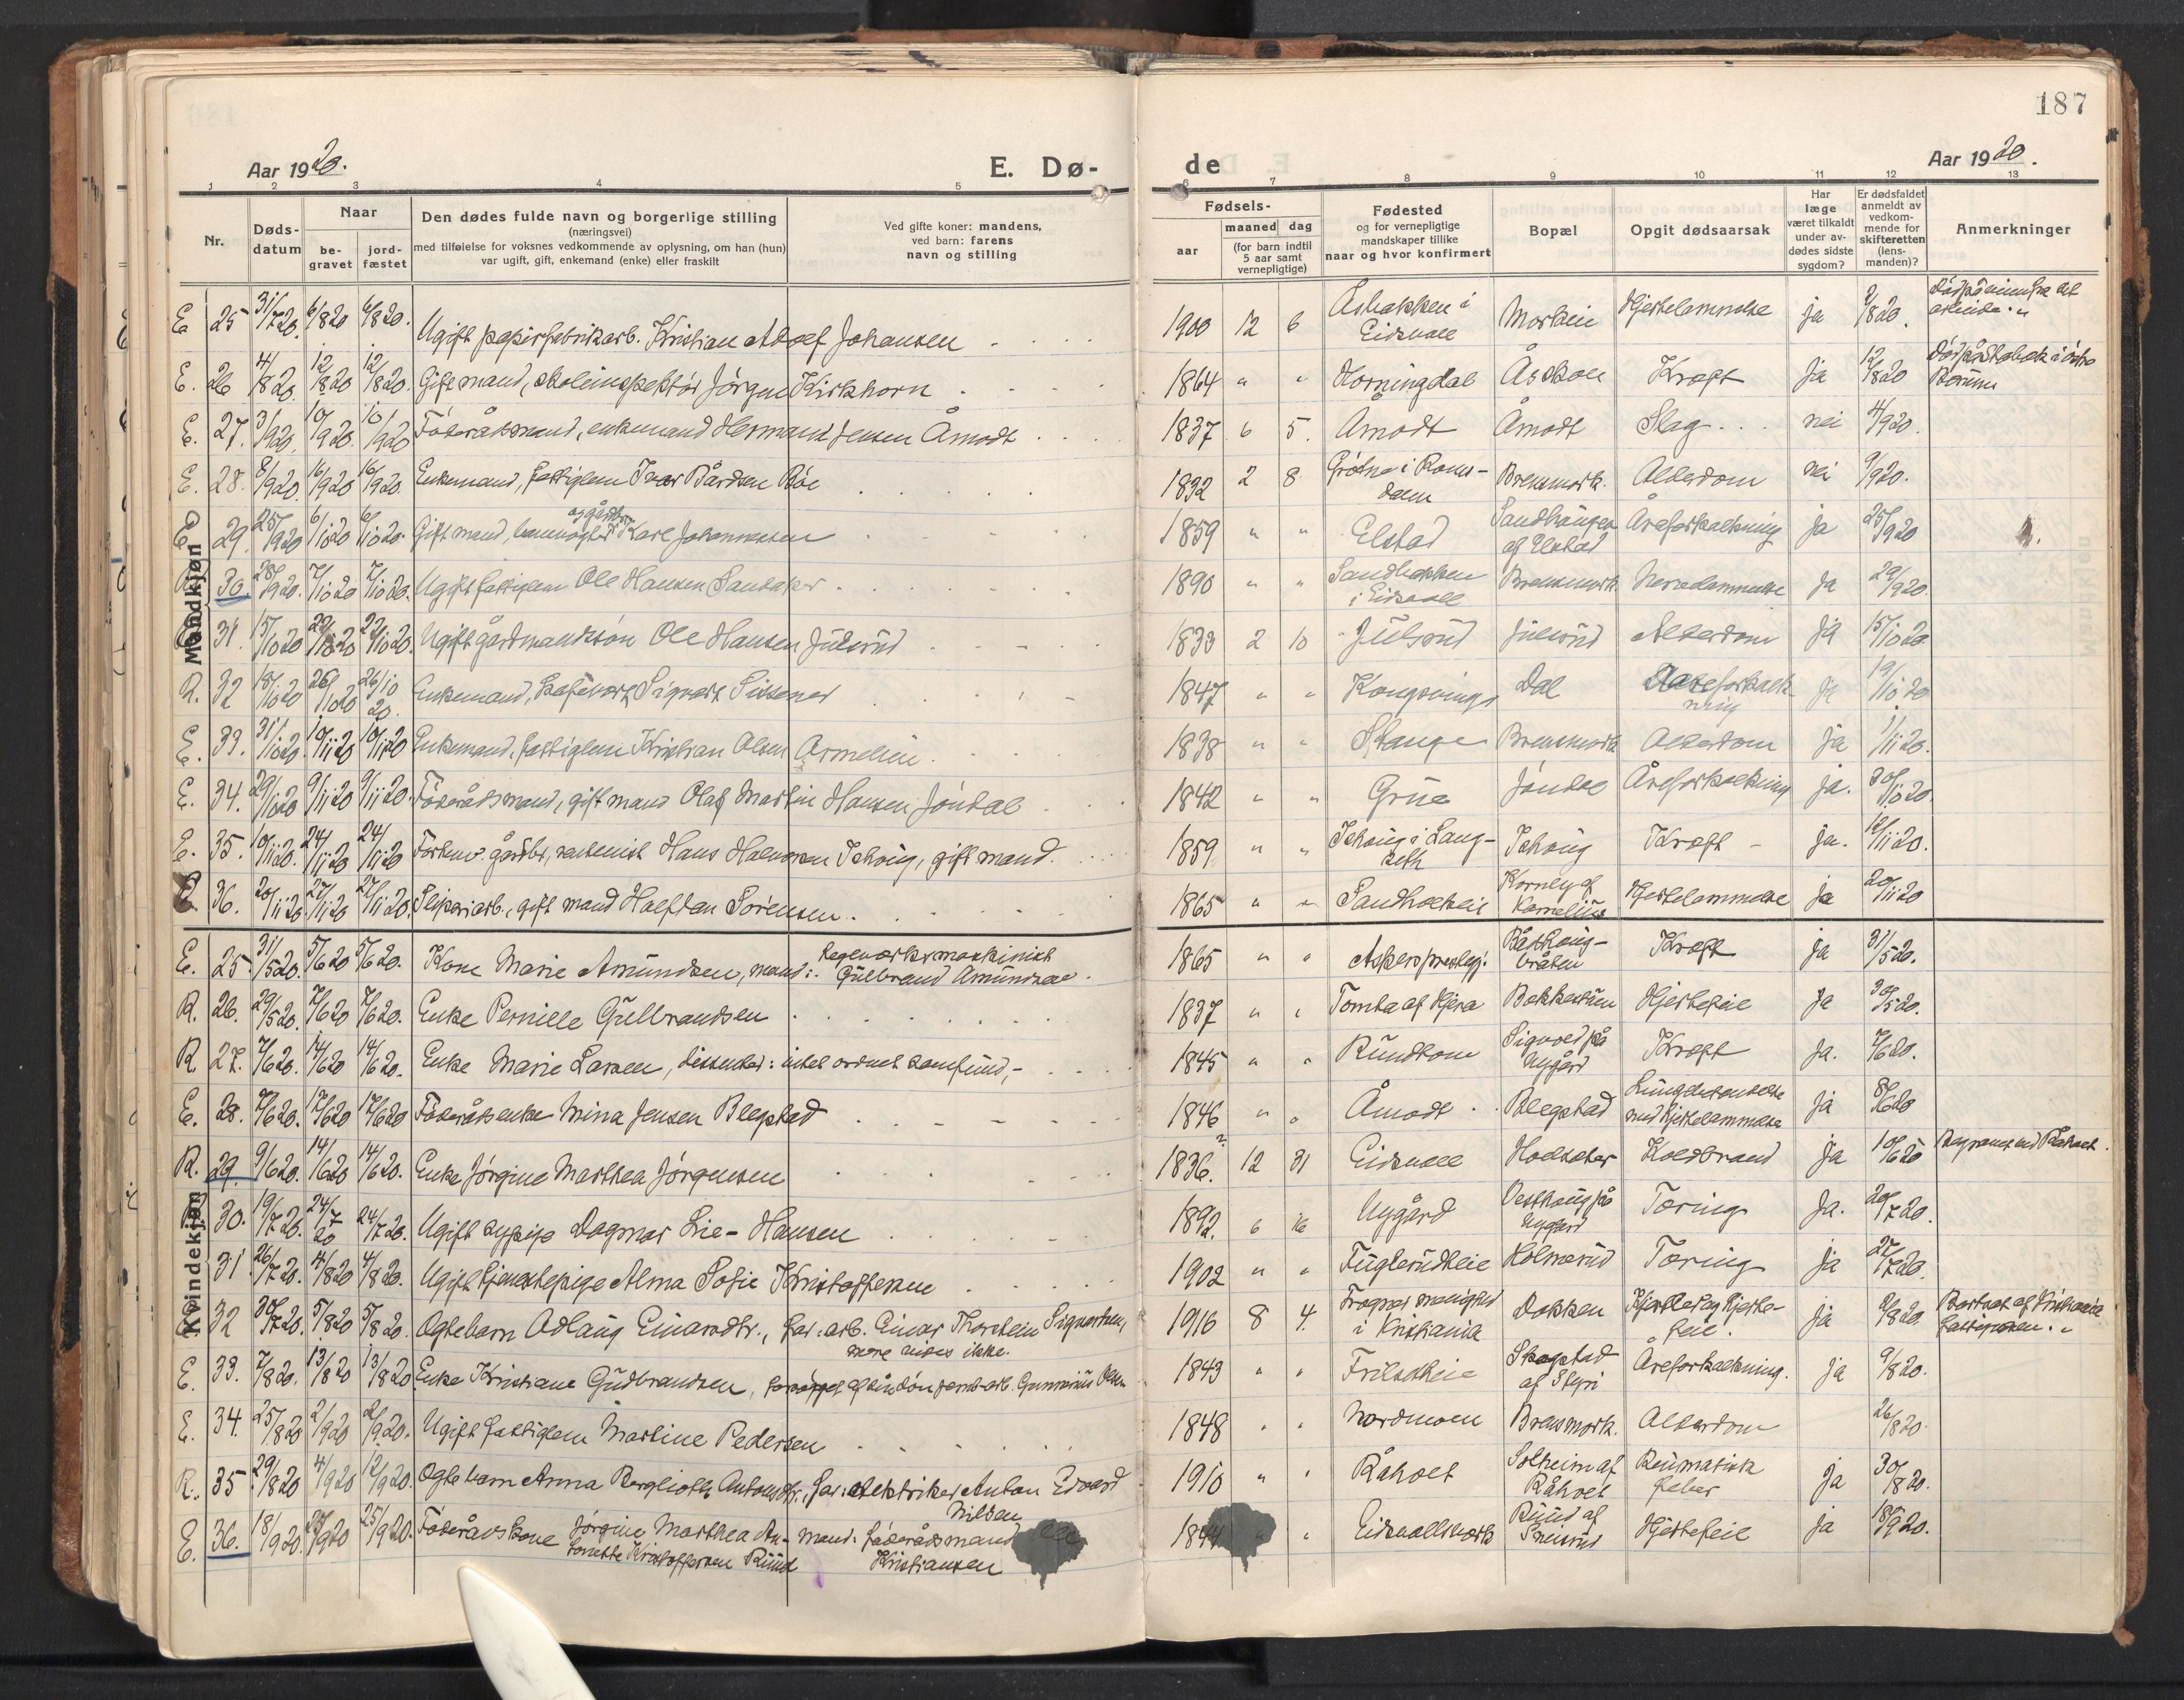 187
Aar 1920.
E. Dø-
de
Aar 1920.
1 2 3 4 5 6 7 8 9 10 11 12 13
Nr.
Døds-
datum
Naar
be-
gravet
jord-
fæstet
Den dødes fulde navn og borgerlige stilling
(næringsvei)
med tilføielse for voksnes vedkommende av oplysning, om han (hun)
var ugift, gift, enkemand (enke) eller fraskilt
Ved gifte koner: mandens,
ved barn: farens
navn og stilling
Fødsels-
aar
maaned dag
(for barn indtil
5 aar samt
vernepligtige)
Fødested
og for vernepligtige
mandskaper tillike
naar og hvor konfirmert
Bopæl
Opgit dødsaarsak
Har
læge
været tilkaldt
under av-
dødes sidste
sygdom?
Er dødsfaldet
anmeldt av
vedkom-
mende for
skifteretten
(lens-
manden)?
Anmerkninger
Mandkjøn
E. 25 31/7 20. 6/8 20 6/8 20. Ugift papirfabrikarb. Kristian Adolf Johansen 1900 12 6 Åsbakken i Eidsvoll Morkeie Hjertelammelse ja 2/8 20.
E. 26 4/8 20. 12/8 20 12/8 20. Gift mand, skoleinspektør Jørgen Kirkhorn 1864 " " Horningdal Åskoll Kræft ja 12/8 20
E. 27. 3/9 20. 10/9 20. 10/9 20 Føderådsmand, enkemand Hermand Jensen Åmodt 1837 6 5. Åmodt Åmodt Slag nei 4/9 20.
E. 28. 8/9 20. 16/9 20 16/9 20. Enkemand, fattiglem Ivar Bårdsen Röe 1832 2 8 Grötne i Roms- dalen Brensmork. Alderdom nei 9/9 20.
E. 29. 25/9 20 6/10 20 6/10 20. Gift mand, banevogter og gårdbr. Karl Johannessen 1859 " " Elstad Sandhaugen af Elstad Åreforkalkning ja 25/9 20
30. 28/9 20. 7/10 20 7/10 20. Ugift fattiglem Ole Hansen Sandaker 1890 " " Sandbakken i Eidsvoll Brensmork Nervelammelse ja 29/9 20.
31. 15/10 20 22/10 20 22/10 20. Ugift gårdmandssøn Ole Hansen Julsrud 1833 2 10 Julsrud Julsrud Alderdom ja 15/10 20.
R. 32 18/10 20 26/10 20 26/10 20. Enkemand, Kafévert Sigvart Sissener 1847 " " Kongsvinger Dal Aareforkalkning ja 19/10 20
E. 33. 31/10 20. 10/11 20 10/11 20 Enkemand, fattiglem Kristian Olsen Ormelien. 1838 " " Stange Brensmork Alderdom ja 1/11 20.
E. 34. 29/10 20 9/11 20 9/11 20. Føderådsmand, gift mand Olaf Martin Hansen Jöndal 1842 " " Grue Jöndal Åreforkalkning ja. 30/10 20.
E. 35. 10/11 20. 24/11 20 24/11 20 Forhenv. gårdbr, rentenist Hans Halvorsen Ishoug, gift mand. 1859 " " Ishoug i Lang- seth Ishoug Kræft ja. 12/11 20.
36. 20/11 20 27/11 20 27/11 20. Sliperiarb., gift mand Halfdan Sørensen. 1865 " " Sandholteie Kornely af Kornelius Hjertelammelse ja 20/11 20
Kvindekjøn
E. 25. 31/5 20. 5/6 20 5/6 20. Kone Marie Amundsen, mand: Teglverksmaskinist Gulbrand Amundsen. 1865 " " Askers prestegj. Råskoug- bråten Kræft ja 31/5 20.
R. 26. 29/5 20. 7/6 20 7/6 20. Enke Pernille Gulbrandsen 1837 " " Tomta af Hjera Bakkestuen Hjertefeil ja 30/5 20.
R. 27. 7/6 20. 14/6 20 14/6 20. Enke Marie Larsen, dissenter: intet ordnet samfund,- 1845 " " Rundtom Sigvold på Nygård Kræft ja. 7/6 20.
E. 28. 7/6 20. 17/6 20 17/6 20 Føderådsenke Mina Jensen Blegstad 1846 " " Åmodt Blegstad Lungebetændelse med hjertelammelse ja 8/6 20
R. 29. 9/6 20. 14/6 20 14/6 20. Enke Jörgine Marthea Jörgensen 1836. 12 31 Eidsvoll Holtseter Koldbrand ja 10/6 20 Begravet ved Råholt.
30. 19/7 20. 24/7 20 24/7 20. Ugift sypige Dagmar Lie-Hansen 1892. 6 16 Nygård Vesthoug på Nygård Tæring ja. 20/7 20.
31. 26/7 20. 4/8 20 4/8 20. Ugift tjenestepige Alma Sofie Kristoffersen 1902 " " Fuglerudheie Holmsrud Tæring ja 27/7 20.
32 30/7 20. 5/8 20 5/8 20. Ogtebarn Adlaug Einarsdtr., far: arb. Einar Thorstein Sigvartsen, more vides ikke. 1916 8 4. Frogner menighet i Kristiania Dokken ja 2/8 20. Bortsat af Kristiania fattigvesen.
E. 33. 7/8 20. 13/8 20 13/8 20 Enke Kristiane Gudbrandsen, forsörget af sin sön jernb.arb. Gunnerius Olsen 1843 " " Frilsetheie Skogstad af Styri Åreforkalkning. ja 9/8 20.
E. 34. 25/8 20 2/9 20 2/9 20. Ugift fattiglem Martine Pedersen 1848 " " Nordmoen Brensmork. Alderdom 26/8 20.
R. 35. 29/8 20 4/9 20 12/9 20. Ogtebarn Anna Bergliotk Antonsdtr., far: elektriker Anton Edvard Nilsen 1910 " " Råholt Solheim af Råholt Reumatisk feber ja 30/8 20.
E. 36. 18/9 20. 25/9 20 25/9 20. Føderådskone Jörgine Marthea An- tonette Kristoffersen Ruud mand: føderådsmand Kristiansen 1844 " " Eidsvollsverk Ruud af Sneisrud Hjertefeil ja 18/9 20.